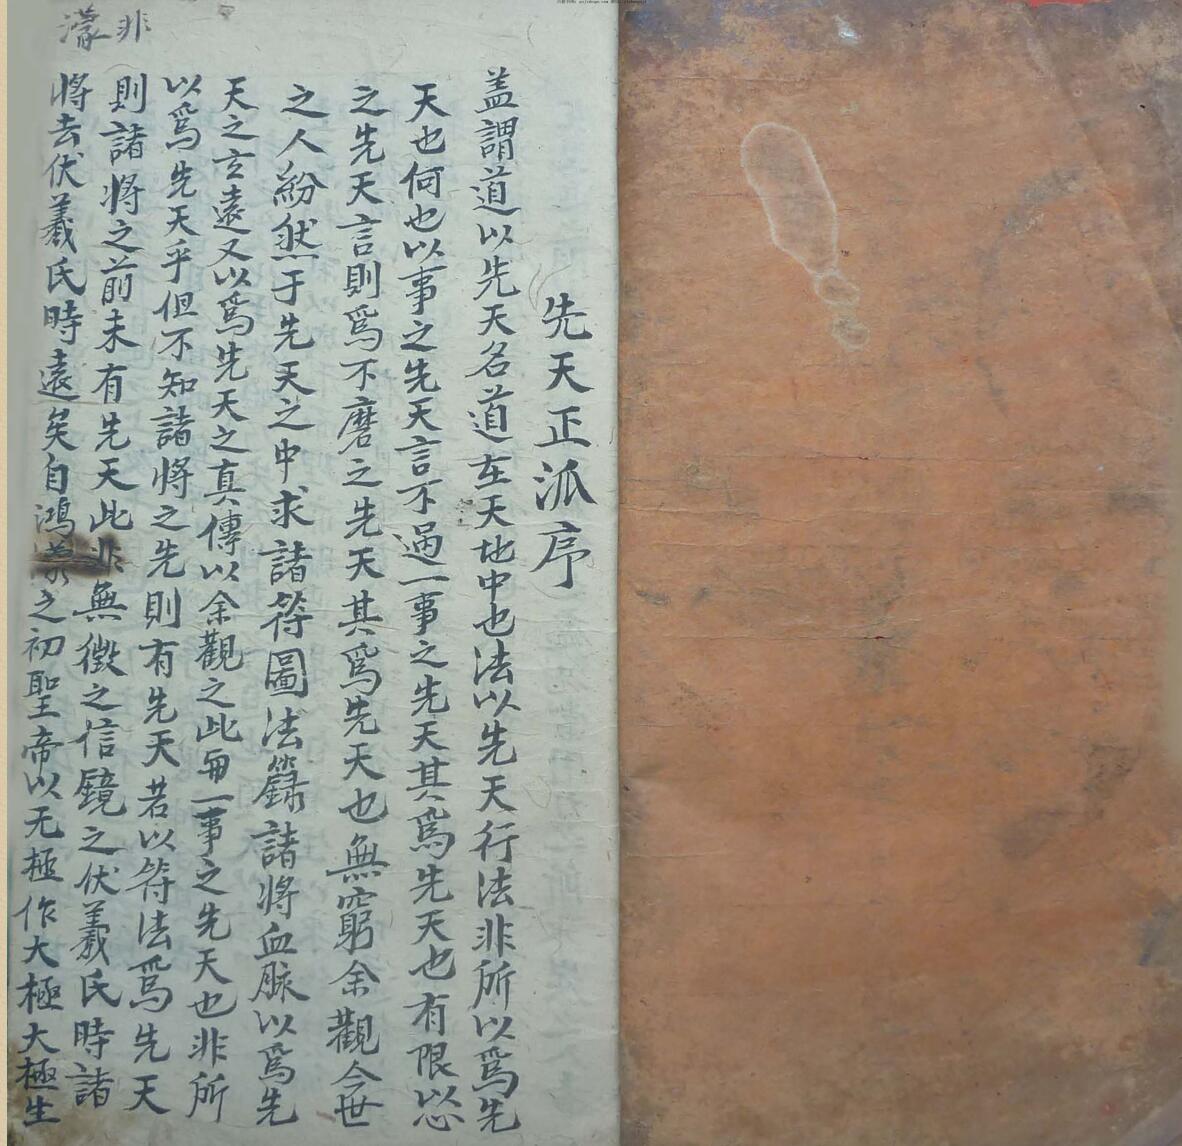 先天正派序
盖謂道以先天名道在天地中也法以先天行法非所以爲先
天也何也以事之先天言不過一事之先天其爲先天也有限以
之先天言則爲不磨之先天其爲先天也無窮余觀今世
之人紛然于先天之中求諸符圖法籙諸將血脉以爲先
天之玄遠又以爲先天之真傳以余觀之此毎一事之先天也非所
以爲先天乎但不知諸將之先則有先天若以符法爲先天
則諸將之前未有先天此非無徵之信鏡之伏羲氏時諸
將去伏羲氏時遠矣自鴻之初聖帝以无極作大極大極生
非
濛